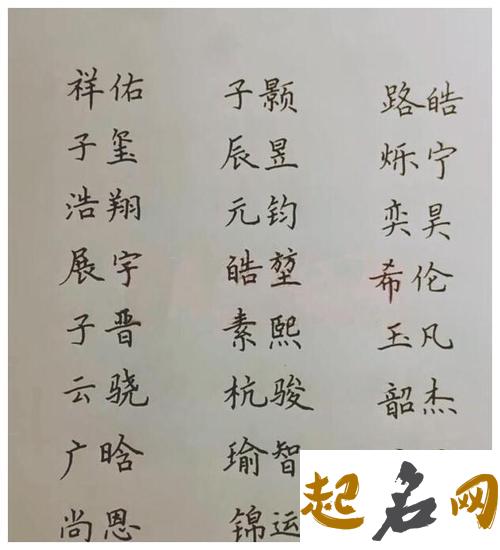 祥佑 子颢 路皓
子玺 辰昱 烁宁
浩翔 元钧 奕昊
展宇 皓堃 希伦
子晋 素熙 玉凡
云骁 杭骏 韶杰
广晗 瑜智
尚恩 锦运
起名网